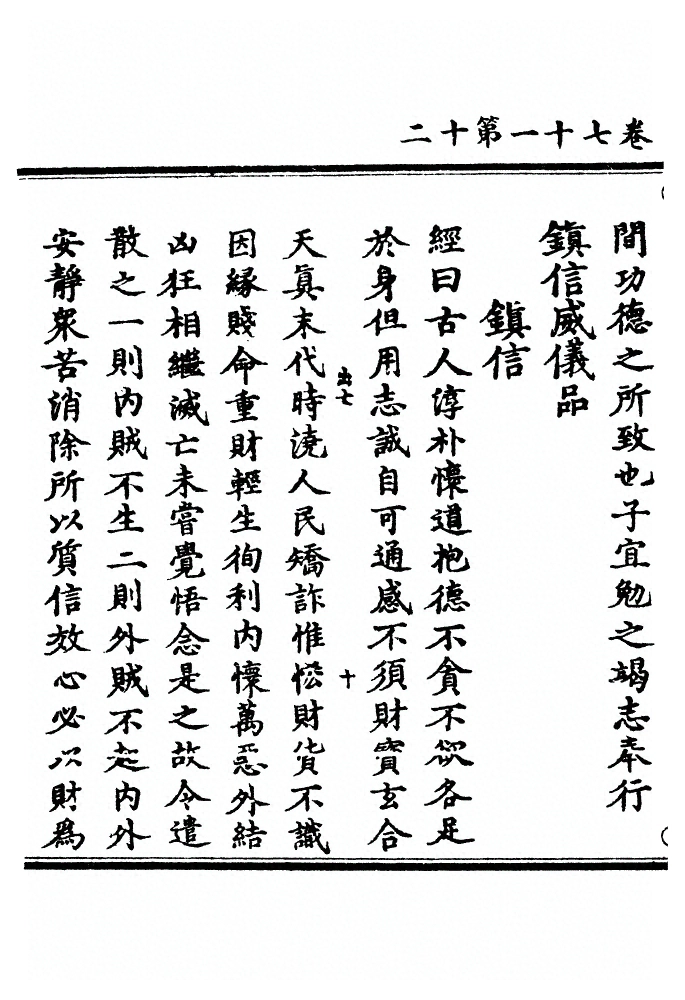 卷七十一第十二
間功德之所致也子宜勉之竭志奉行
鎮信威儀品
鎮信
經曰古人淳朴懷道抱德不貪不欲各足
於身但用志誠自可通感不須財寶玄合
出七
十
天真末代時澆人民矯詐惟怂財貨不識
因緣賤命重財輕生徇利內懷萬惡外結
凶狂相繼滅亡未嘗覺悟念是之故令遣
散之一則內賊不生二則外賊不起內外
安靜衆苦消除所以質信效心必以財為